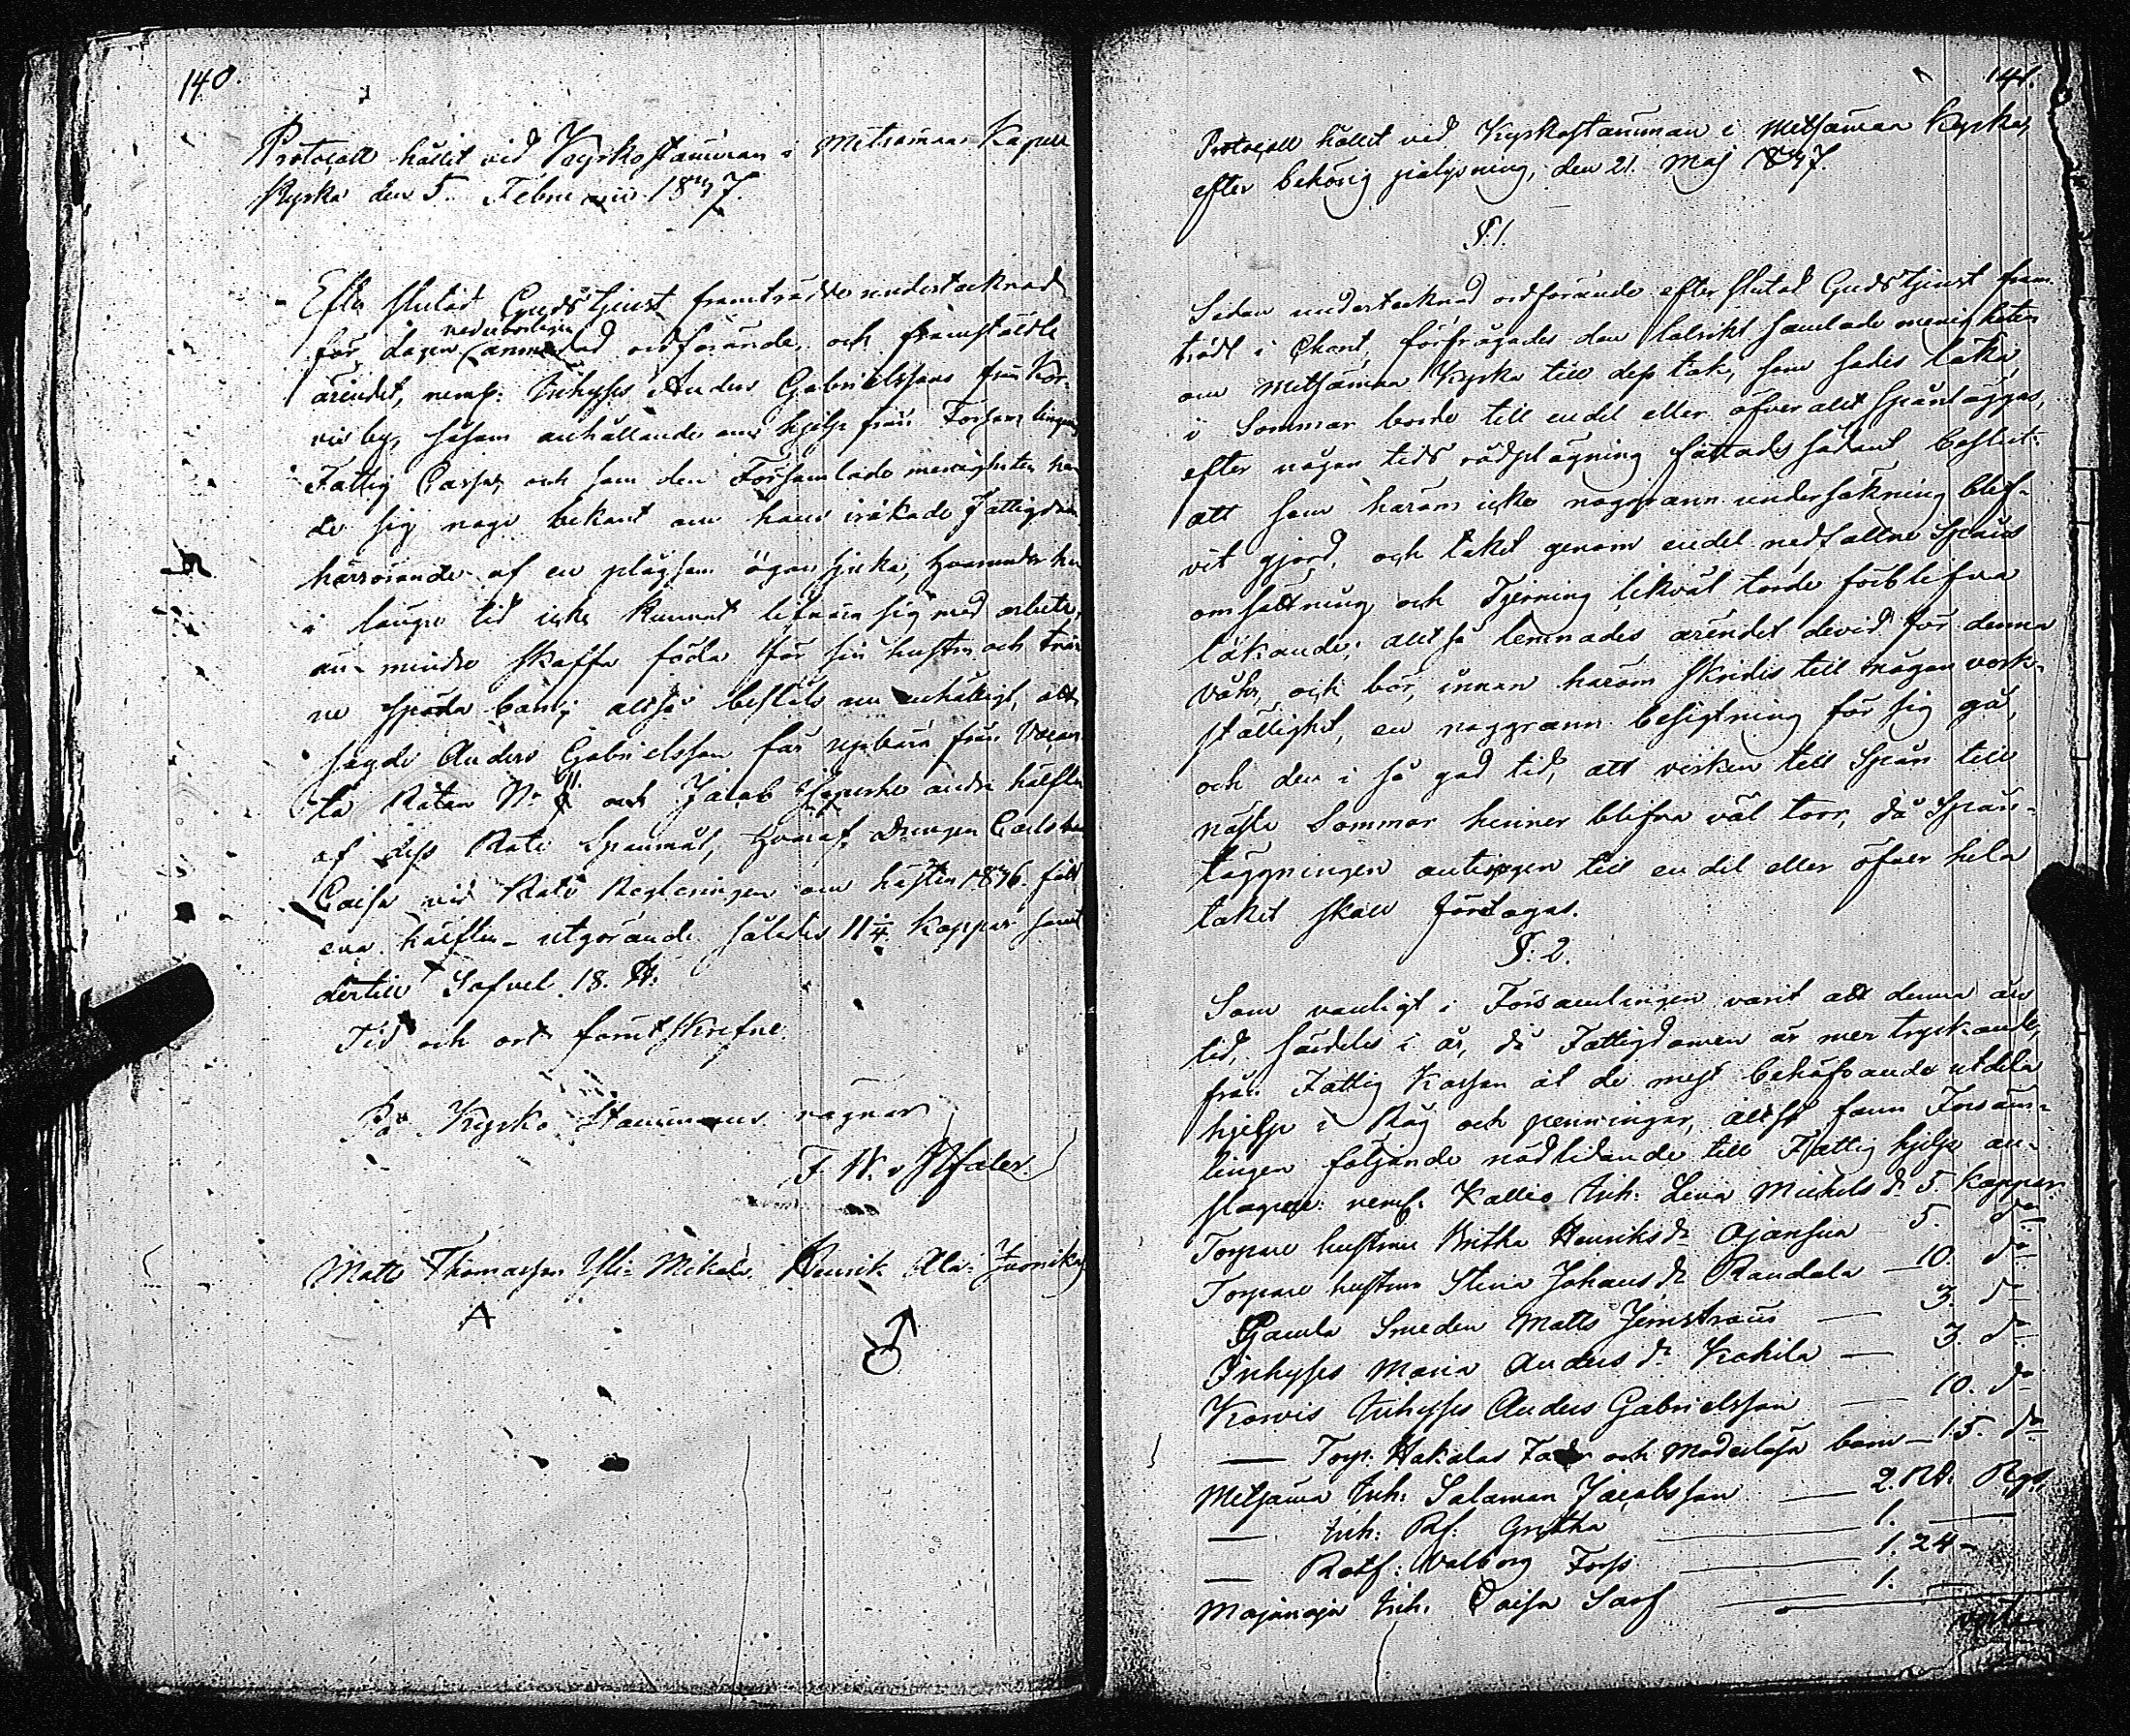 140.
Protocoll hållit vid Kyrkostämman i Metsämaa Kapell
Kyrka den 5. Februarii 1847.
Efter slutad Gudstjenst framträdde undertecknad
nederbörligen
för dagen anmälad ordförande och framstälde
ärendet, neml: Inhyses Anders Gabrielssons från Kor-
vis by, såsom anhållandes om hjelp från Församlingens
Fattig Cassa, och som den Församlade menigheten ha-
de sig noga bekant om hans iråkade Fattigdom
härrörande af en plågsam ögonsjuka, hvarunder han
i långe tid icke kunnat lifnära sig med arbete,
än mindre skaffa föda för sin hustru och tren-
ne späda barn; altså beslöts nu enhälligt, att
sagde Anders Gabrielsson får uppbära från Vacan-
ta Råtan N: och Jacob andra hälften
af dess Rote Spanmål, hvaraf drengen Carl
Caisa vid Rote Regleringen om hösten 1846. fått
ena hälften - utgörande således 11 1/4 Kappar samt
dertill Sofvel 18. ℔:
Tid och ort förutskrefne.
På Kyrko Stämmans vägnar
F. W. v Pfaler
Matts Thomasson Yli- Mikola. Henrik Ala- Juonikas
141.
Protocoll hållit vid Kyrkostämman i Metsämaa Kyrka,
efter behörig pålysning, den 21. Maj 1847.
§.1.
Sedan undertecknad ordförande efter slutad Gudstjenst fram-
trädt i Choret, förfrågades den talrikt samlade menigheten
om Metsämaa Kyrka till dess tak, som sades läka,
i Sommar borde till en del eller öfver alt spåntäggas,
efter någon tids rådplägning fattades sådant beslut:
att som härom icke noggrann undersökning blif-
vit gjord, och taket genom en del nedfallne Spåns
omsättning och Tjerning likväl torde förblifva
läkande; altså lemnades ärendet devid för denna
våhr, och bör, innan härom skrides till någon verk-
ställighet, en noggrann besigtning för sig gå,
och den i så god tid, att virken till Spån till
näste Sommar hinner blifva väl torr, då Spån-
täggningen antingen till en del eller öfver hela
taket skall företagas.
§. 2.
Som vanligt i Församlingen varit att denna års
tid, särdeles i år, då Fattigdomen är mer tryckande,
från Fattig Kassan åt de mest behöfvande utdela
hjelp i Råg och penningar, altså fann Försam-
lingen följande nödlidande till Fattig hjelp an-
slagne: neml. Kallio Inh: Lena Michels dr 5. Kappar
Torpare hustrun Britha Henriks dr Ojansuu 5. do
Torpare hustrun Stina Johans dr Randala — 10. do
Gamla Smeden Matts Jernström — 3. do
Inhyses Maria Anders dr Kokila — 3. do
Korvis Inhyses Anders Gabrielsson — 10. do
— Torp: Hakalas Fader och Moderlösa barn — 15. do
Metsämaa Inh: Salomon Jacobsson — 2. Rb: Rgs
— Inh: Rf: Gretha — 1. —
— Rotf: Walborg Forss — 1. 24 -
Majanoja Inh. Caisa Sarf — 1. —